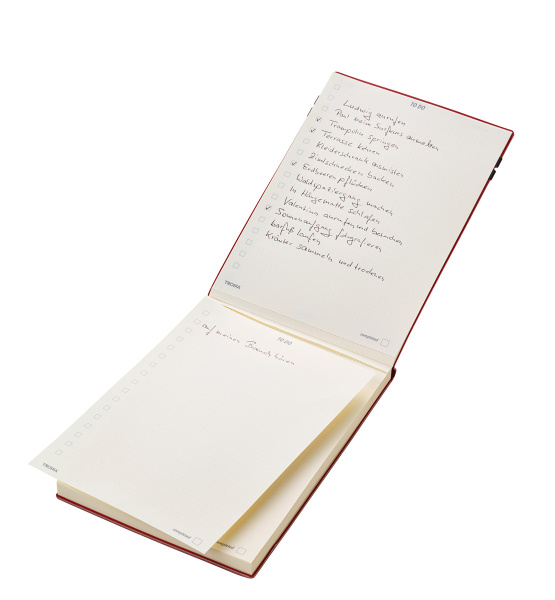 TO DO
Ludwig anrufen
Paul beim Surfkurs anmelden
Trampolin springen
Terrasse kehren
Kleiderschrank ausmisten
Zimtschnecken backen
Erdbeeren pflücken
Waldspaziergang machen
In Hängematte schlafen
Valentina anrufen und besuchen
Sonnenaufgang fotografieren
barfuß laufen
Kräuter sammeln und trocknen
TROIKA
completed
TO DO
Auf meinen Bauch hören
TROIKA
completed
completed